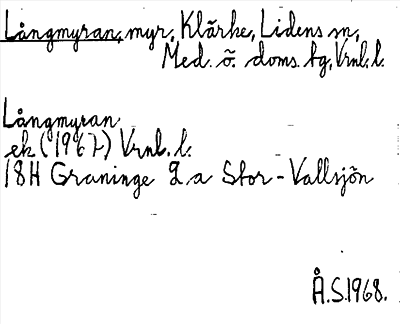 Långmyran, myr, Klärke, Lidens sn,
Med. ö. doms. tg, Vrnl. l.
Långmyran
ek (1967) Vrnl. l.
18H Graninge 2 a Stor-Vallsjön
Å.S. 1968.